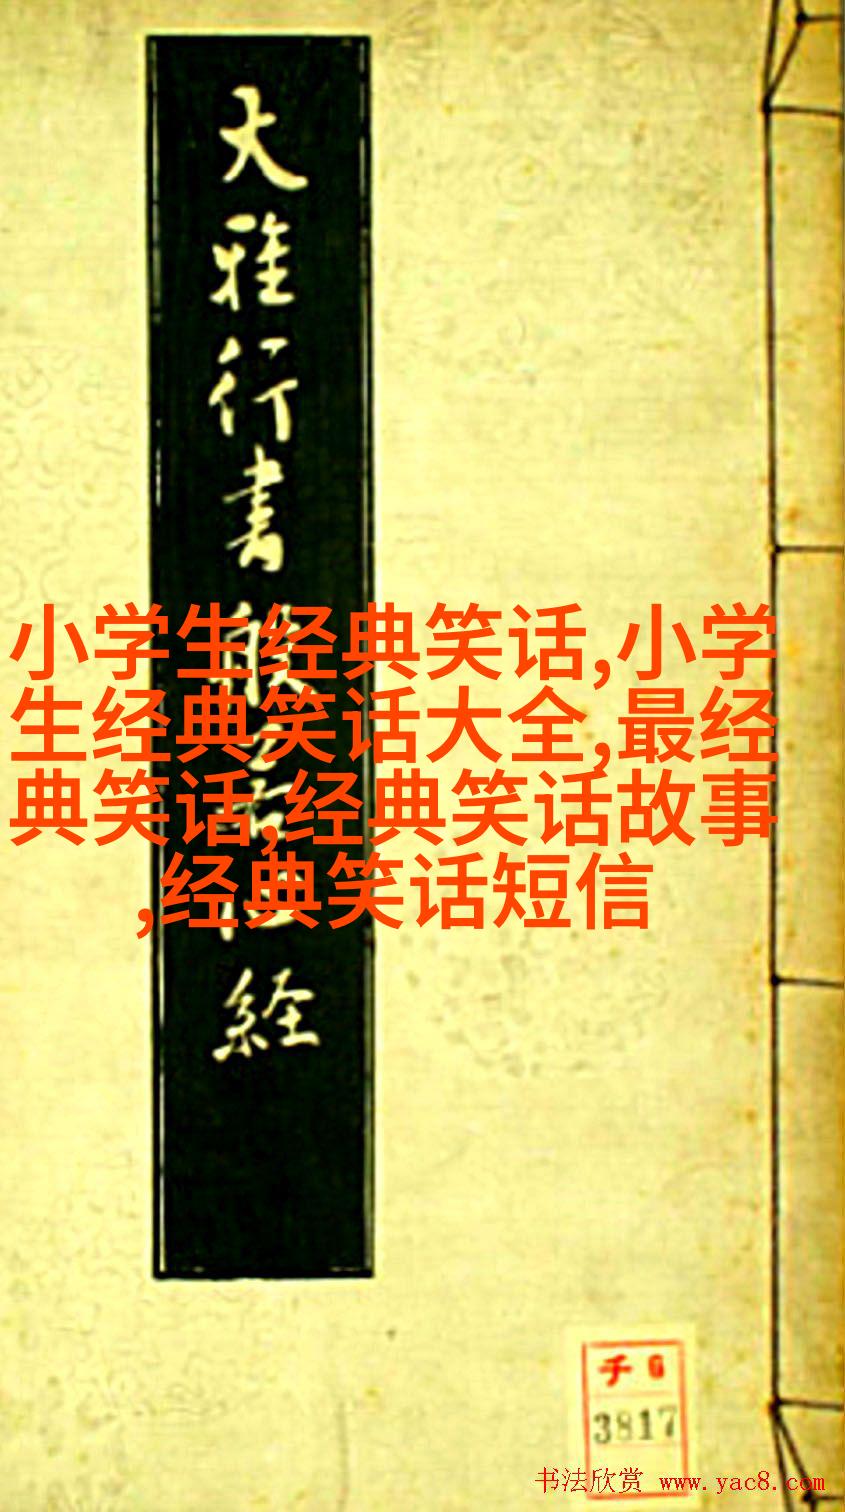 大雅行書般若
経
小学生经典笑话,小学
生经典笑话大全,最经
典笑话,经典笑话故事
,经典笑话短信
チ 6
3817
书法欣赏 www.yac8.com